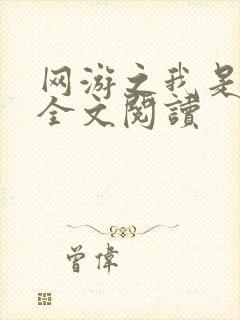 网游之我是
全文閱讀
曾偉